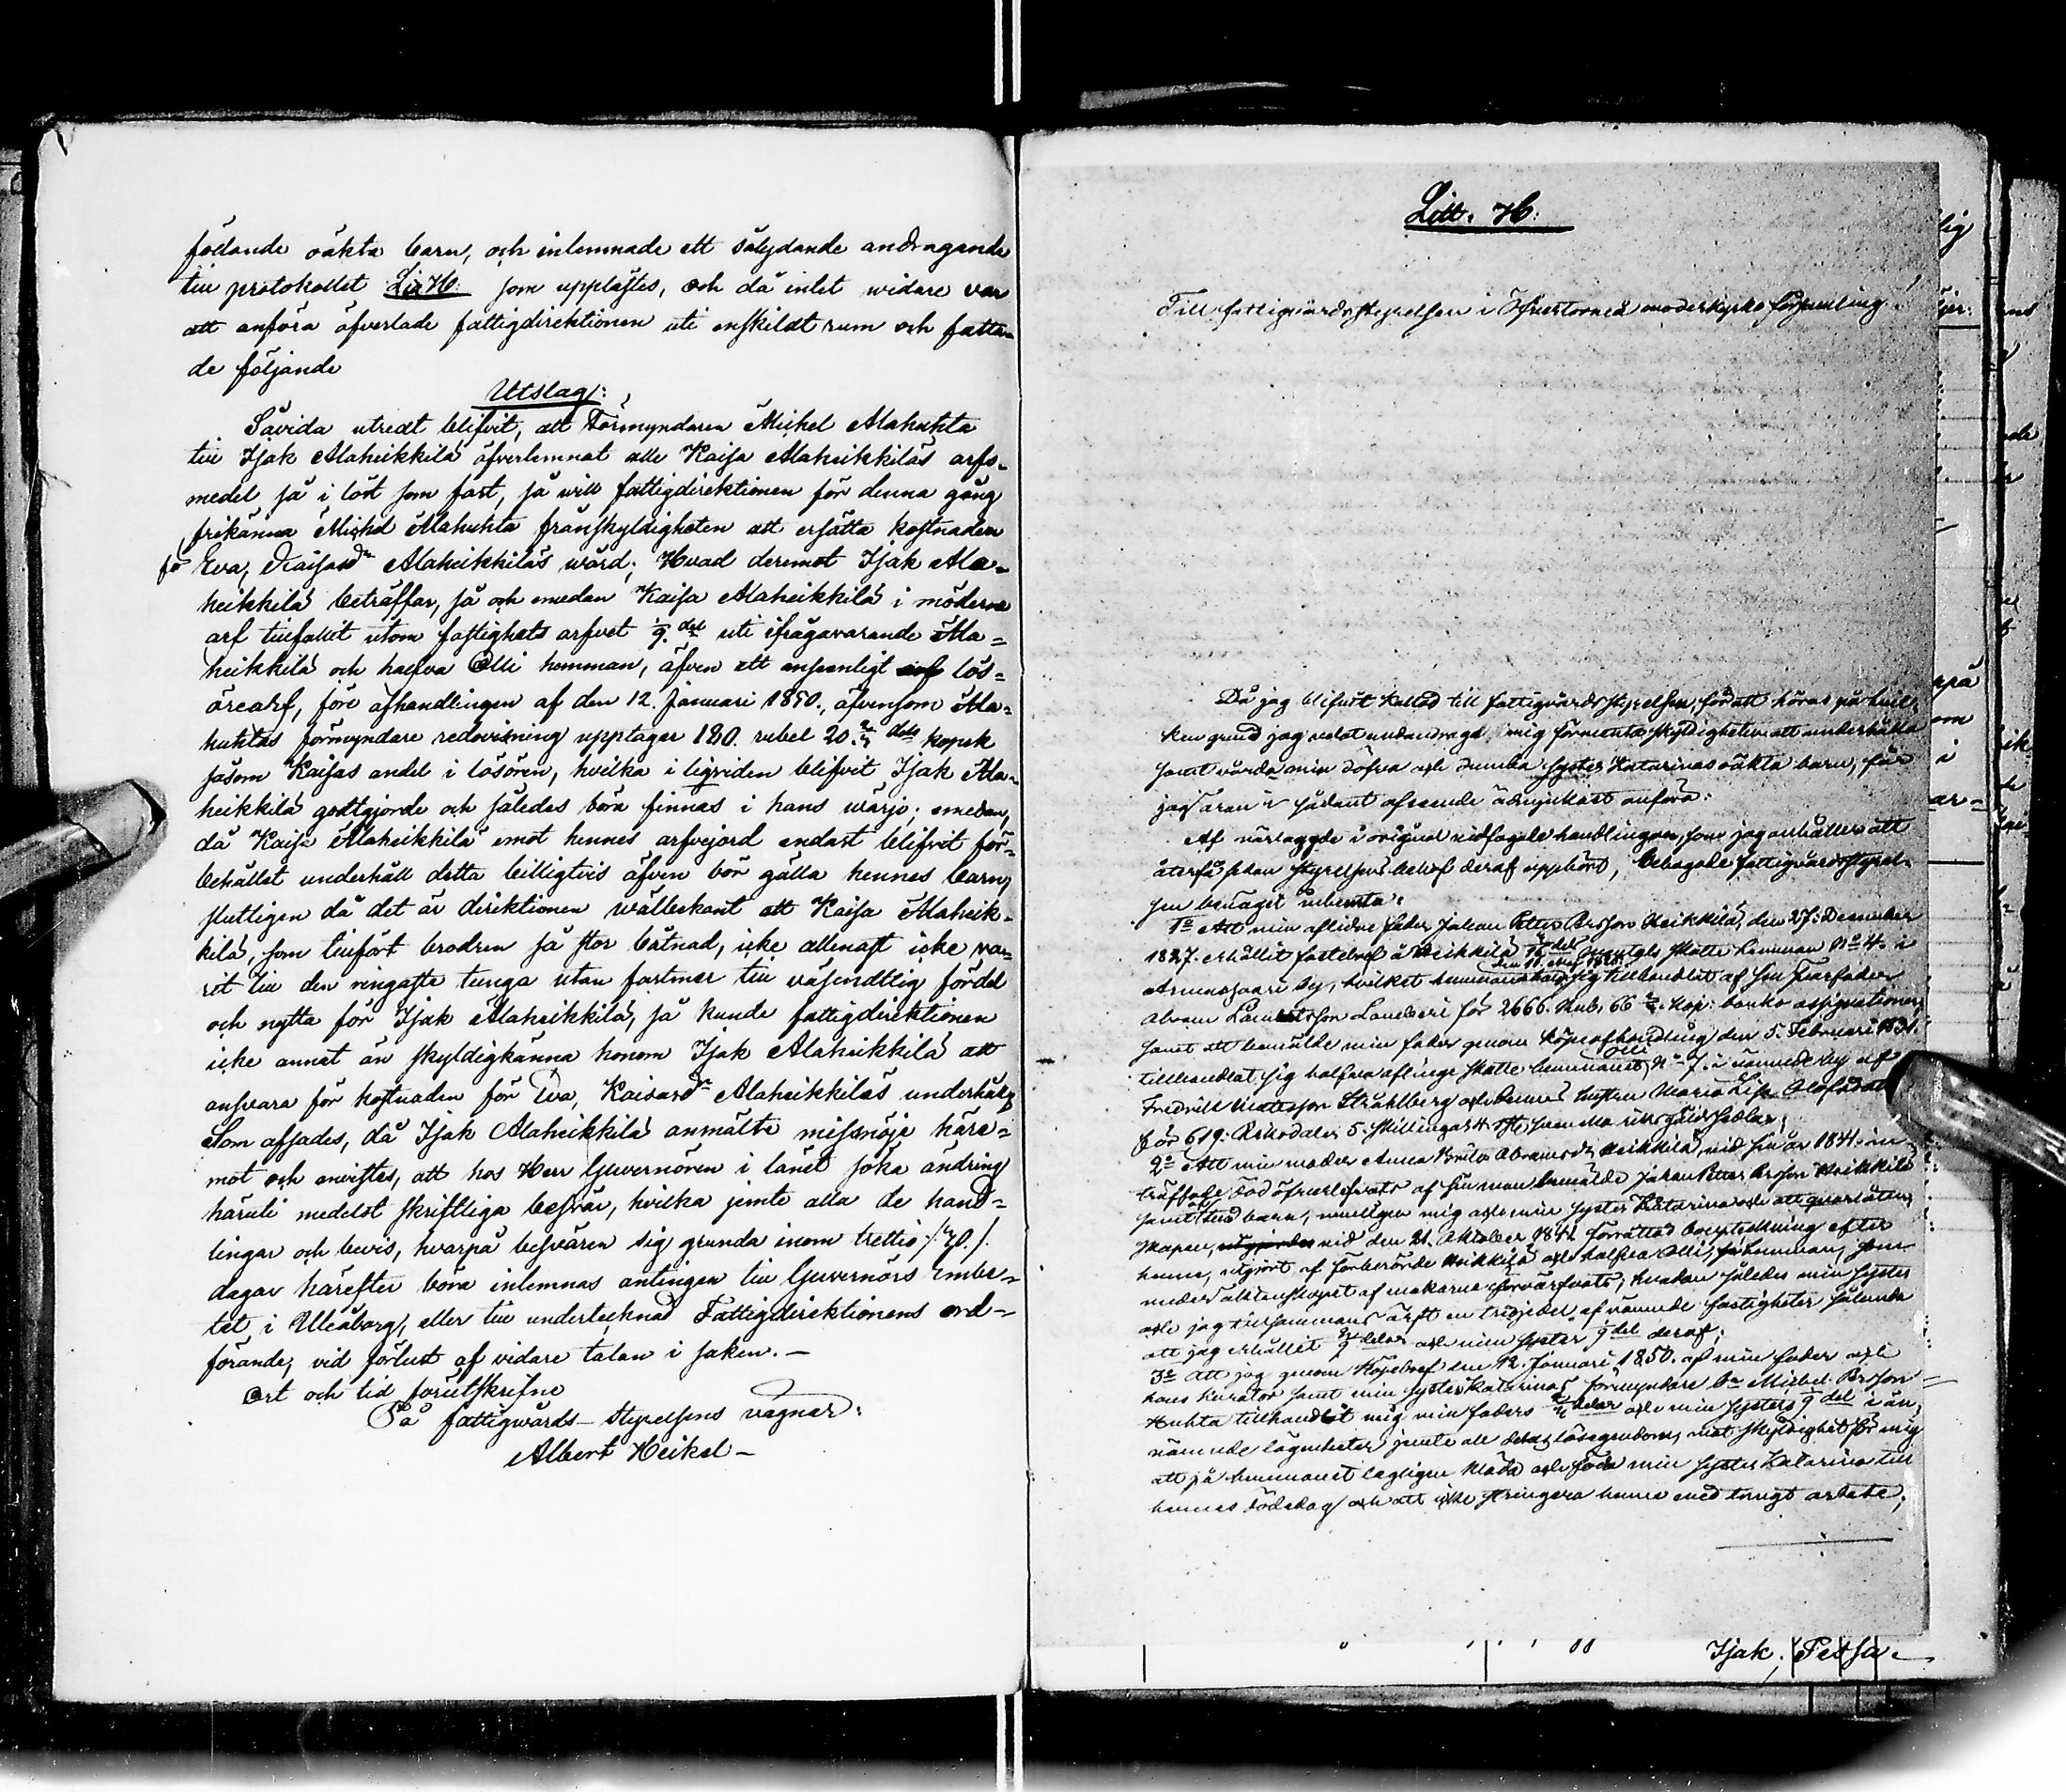 födande oäkta barn, och inlemnade ett sålydande andragande
till protokollet Lit H. som upplästes, och då intet widare var
att anföra öfverlade fattigdirektionen uti enskildt rum och fatta-
de följande
Utslag:
Såvida utredt blifvit, att Förmyndaren Mickel Alahuhta
till Isak Alaheikkilä öfverlemnat alla Kaisa Alaheikkiläs arfs-
medel så i löst som fast, så will fattigdirektionen för denna gång
frikänna Michel Alahuhta från skyldigheten att ersätta kostnaden
för Eva, Kaisasdr Alaheikkiläs wård; Hvad deremot Isak Ala-
heikkilä beträffar, så och emedan Kaisa Alaheikkilä i möderne
arf tillfallit utom fastighets arfvet 1/9 del uti ifrågavarande Ala-
heikkilä och halfva Olli hemman, äfven ett ansenligt lös-
örearf, före afhandlingen af den 12. Januari 1850., äfvensom Ala-
huhtas förmyndare redovisning upptager 180. rubel 20. 2/7 dels kopek
såsom Kaisas andel i lösören, hvilka i liqviden blifvit Isak Ala-
heikkilä godtgjorde och således böra finnas i hans wärjo; emedan,
då Kaisa Alaheikkilä emot hennes arfvejord endast blifvit för-
behållet underhåll detta billigtvis äfven bör gälla hennes barn,
slutligen då det är direktionen wälbekant att Kaisa Alaheik-
kilä, som tillfört brodren så stor båtnad, icke allenast icke va-
rit till den ringaste tunga utan fastmer till väsendtlig fördel
och nytta för Isak Alaheikkilä, så kunde fattigdirektionen
icke annat än skyldigkänna honom Isak Alaheikkilä att
ansvara för kostnaden för Eva, Kaisasdr Alaheikkiläs underhåll
Som afsades, då Isak Alaheikkilä anmälte missnöje häre-
mot och anvistes, att hos Herr Guvernören i länet söka ändring
häruti medelst skriftliga besvär, hvilka jemte alla de hand-
lingar och bevis, hvarpå besvären sig grunda inom trettio /30./
dagar härefter böra inlemnas antingen till Guvernörs Embe-
tet i Uleåborg, eller till undertecknad Fattigdirektionens ord-
förande, vid förlust af vidare talan i saken.-
Ort och tid förutskrifne
På fattigwårds-Styrelsens vägnar:
Albert Heikel-
Litt. H.
Till fattigvårdsstyrelsen i Öfvertorneå moderkyrko församling!
Då jag blifvit kallad till fattigvårdsstyrelsen, för att höras på hvil-
ken grund jag velat undandraga mig förmenta skyldigheten att underhålla
samt vårda min döfva och dumba syster Katarinas oäkta barn, får
jag äran i sådant afseende ödmjukast anföra:
Af närlaggde i original vidfogade handlingar, som jag anhåller att
återfå sedan styrelsens behof deraf upphört, behagade fattigvårdsstyrel-
sen benäget inhemta:
1o Att min aflidne fader Johan Petter Ersson Heikkilä, den 27. December
1827. erhållit fastebref å Heikkilä mantals skatte hemman No 4. i
Armassaari by, hvilket hemman han den 11. Maj sig tillhandlat af sin svärfader
Abram Larsson Lamberi för 2666. Rub. 66 2/3. Kop. banko assignationer,
samt att bemälde min fader genom köpeafhandling den 5. Februari 1831.
tillhandlat sig halfva aflinge skatte hemmanet Olli No 7. i nämnde by af
Fredrik Matsson Stråhlberg och dennes hustru Maria Lisa Olofsdotter
för 619. Riksdaler 5. Skillingar 4. rst. svenska riksgäldssedlar;
2o Att min moder Anna Brita Abramsdr Heikkilä, vid sin år 1841. in-
träffade död öfverlefvats af sin man bemälde Johan Petter Ersson Heikkilä
samt två barn, nemligen mig och min syster Katarina och att qvarlåten-
skapen, vid den 21. Oktober 1841 förrättad bouppteckning efter
henne, utgjort af förberörde Heikkilä och halfva Olli hemman, som
under äktenskapet af makarne förvärfvats, hvadan således min syster
och jag tillsammans ärft en tredjedel af nämnde fastigheter sålunda
att jag erhållit 2/9 delar och min syster 1/9 del deraf;
3o Att jag genom Köpebref den 12. Januari 1850. af min fader och
hans kurator samt min syster Katarinas förmyndare Michel Ersson
Huhta tillhandlat mig min faders delar och min systers 1/9 del i än-
nämnde lägenheter jemte all deras lösegendom, mot skyldighet för mig
att på hemmanet lagligen kläda och föda min syster Katarina till
hennes dödedag och att icke stringera henne med tungt arbete;
Isak, Petsa.